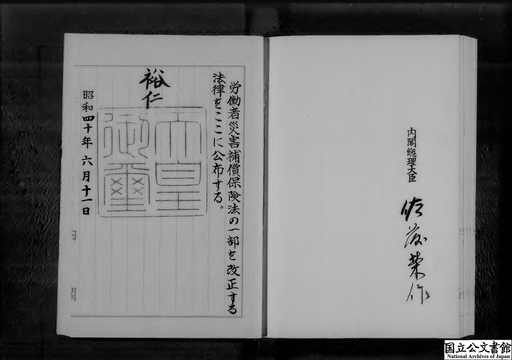 労働者災害補償保険法の一部を改正する
法律をここに公布する。
裕仁
天皇
御璽
昭和四十年六月十一日
内閣総理大臣
佐藤榮作
国立公文書館
National Archives of Japan